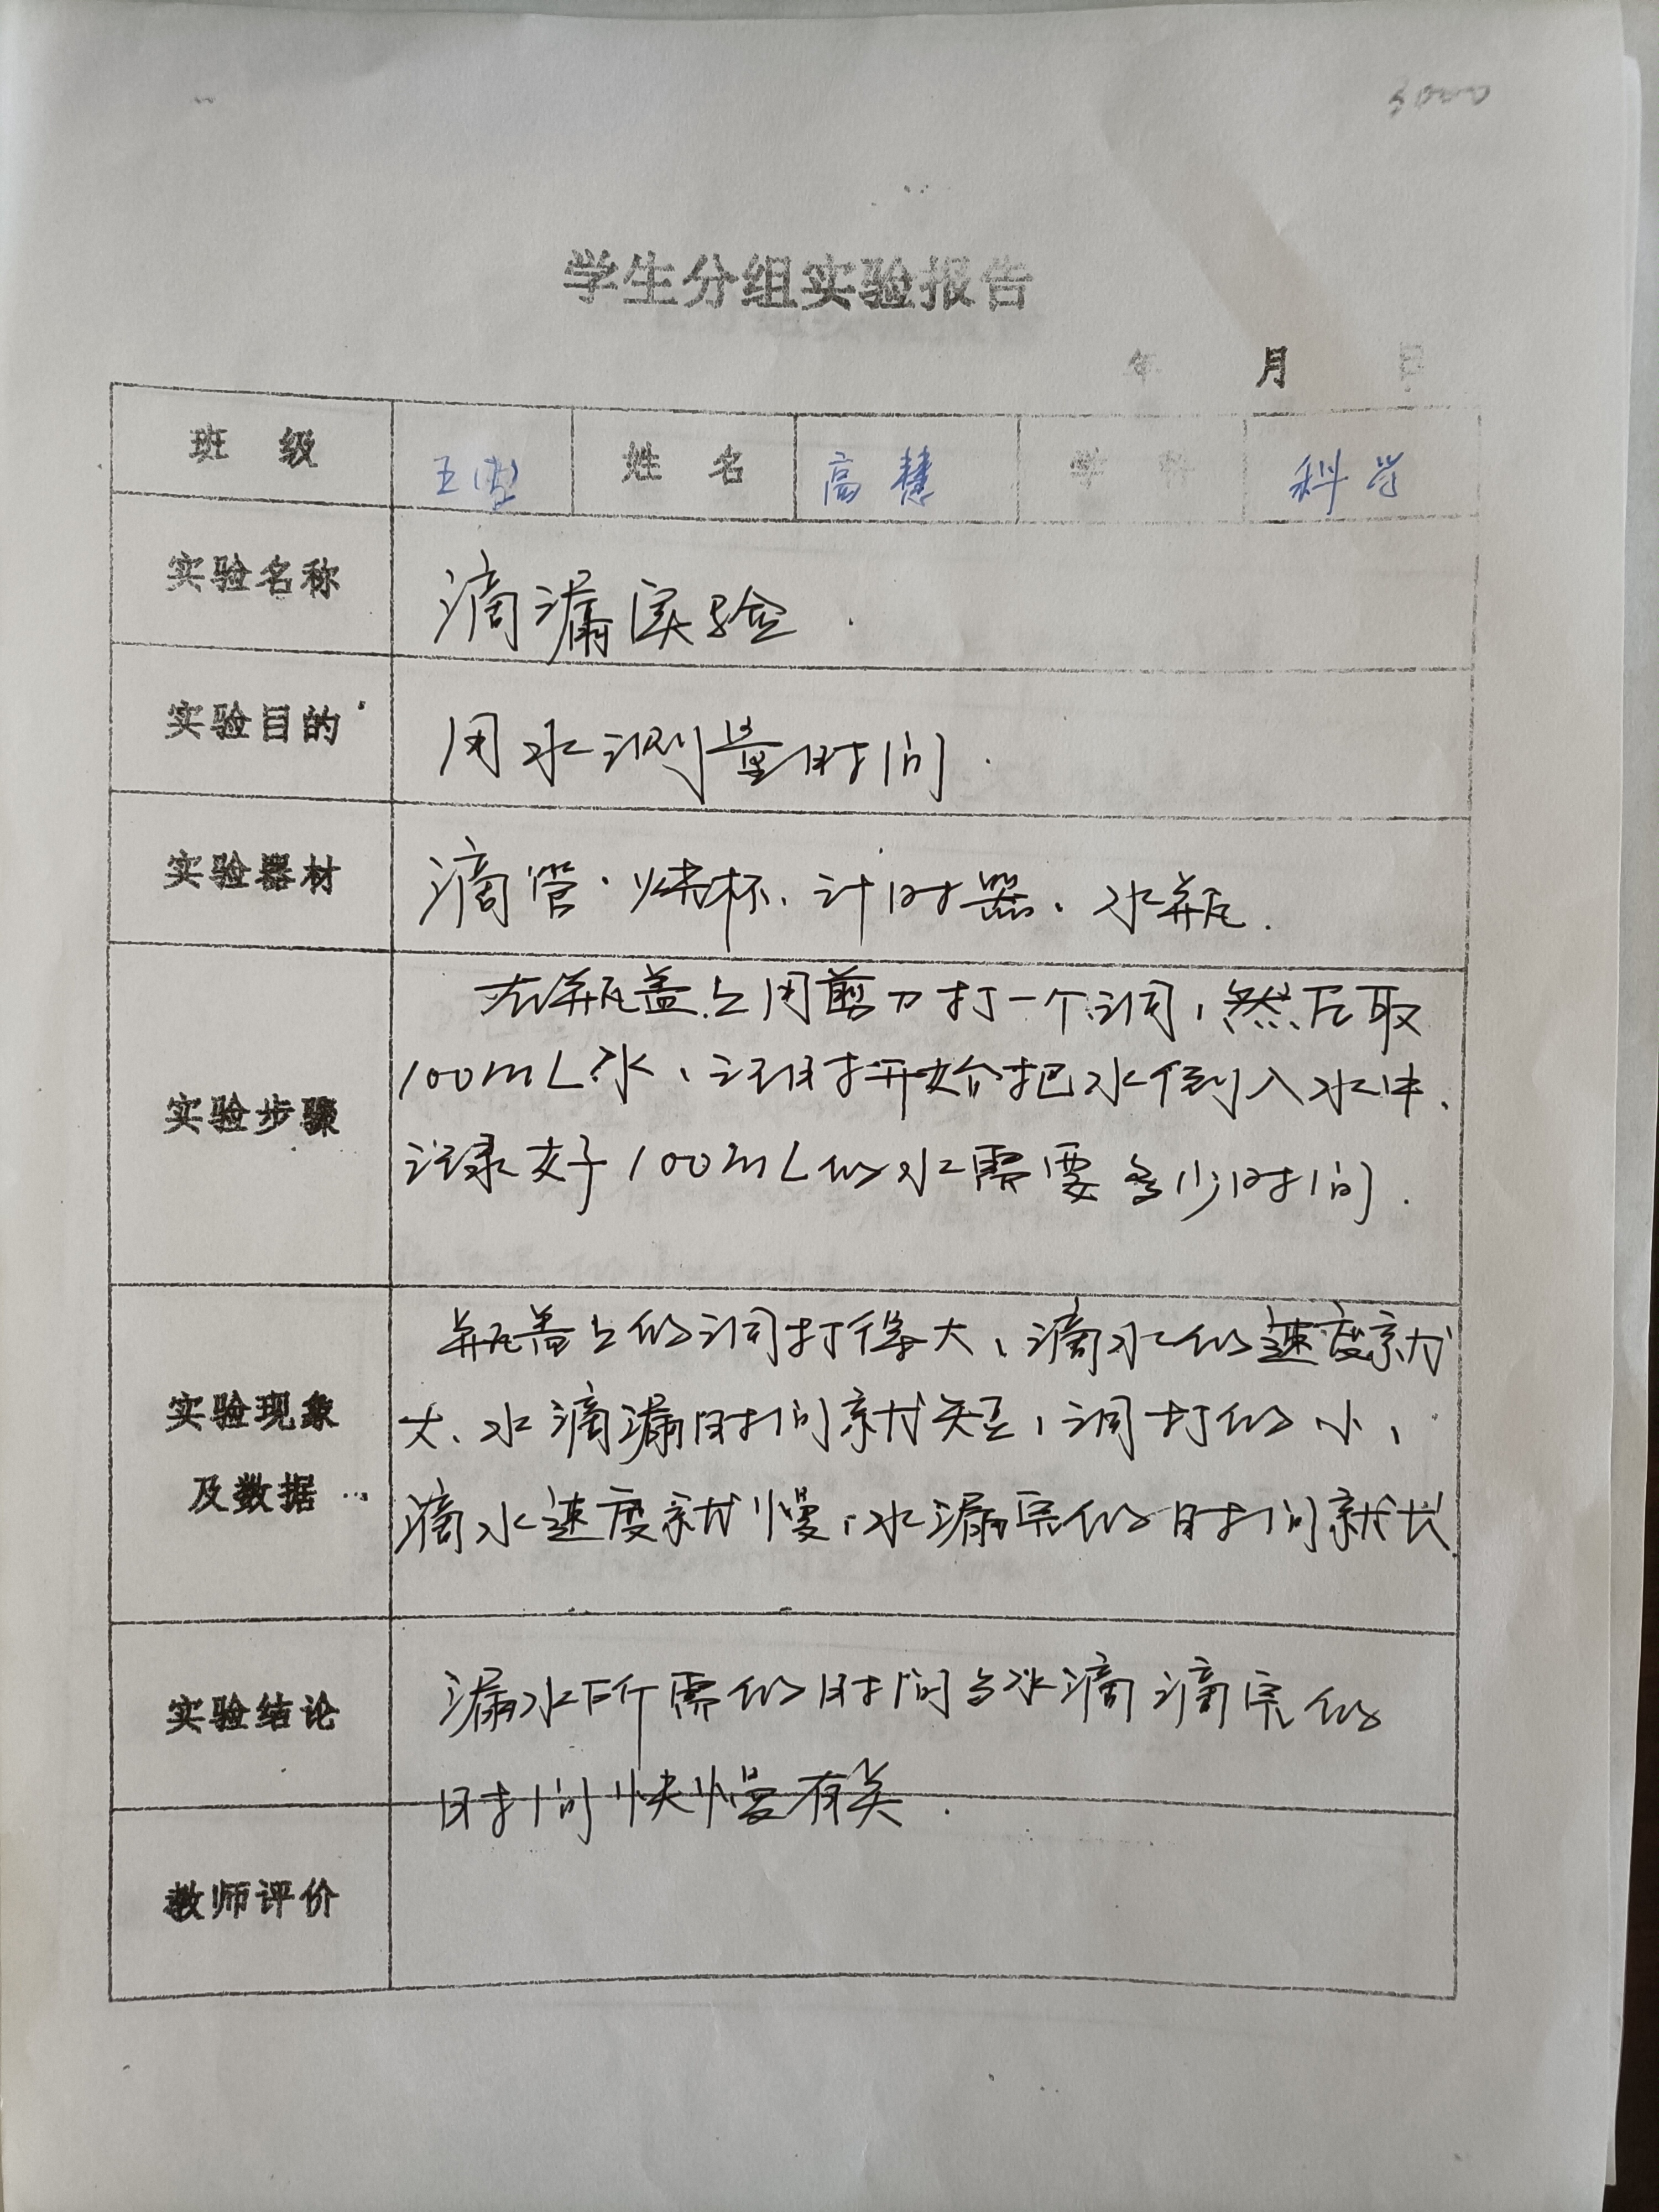 学生分组实验报告
年 月 日
班 级 姓 名 高慧 学 科 科学
实验名称 滴漏实验.
实验目的 用水测量时间.
实验器材 滴管.烧杯、计时器、水瓶.
在瓶盖上用剪刀打一个洞,然后取
100mL水、计时开始把水倒入水中、
实验步骤
记录好100mL的水需要多少时间.
瓶盖上的洞打得大、滴水的速度就
实验现象
大、水滴漏时间就短,洞打的小,
及数据
滴水速度就慢,水漏完的时间就长
实验结论
漏水所需的时间与水滴滴完的
时间快慢有关.
教师评价